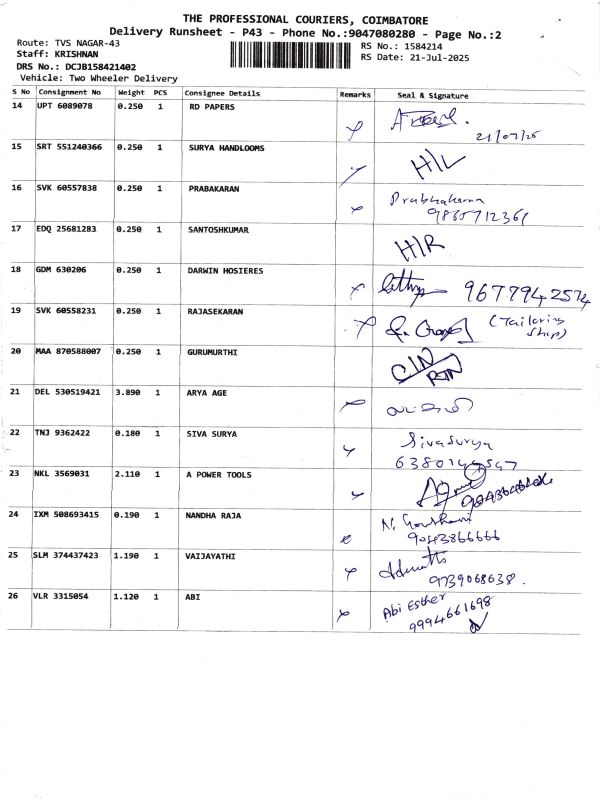 THE PROFESSIONAL COURIERS, COIMBATORE
Delivery Runsheet - P43 - Phone No.:9047080280 - Page No.:2
Route: TVS NAGAR-43
Staff: KRISHNAN
RS No.: 1584214
RS Date: 21-Jul-2025
DRS No.: DCJB158421402
Vehicle: Two Wheeler Delivery
S No Consignment No Weight PCS Consignee Details Remarks Seal & Signature
14 UPT 6089078 0.250 1 RD PAPERS
21/07/25
15 SRT 551240366 0.250 1 SURYA HANDLOOMS H/L
16 SVK 60557838 0.250 1 PRABAKARAN Prabhakaran
9865712361
17 EDQ 25681283 0.250 1 SANTOSHKUMAR H/R
18 GDM 630206 0.250 1 DARWIN HOSIERES 9677942574
19 SVK 60558231 0.250 1 RAJASEKARAN (Tailoring
Shop)
20 MAA 870588007 0.250 1 GURUMURTHI C/N
21 DEL 530519421 3.890 1 ARYA AGE
22 TNJ 9362422 0.180 1 SIVA SURYA Sivasurya
23 NKL 3569031 2.110 1 A POWER TOOLS
24 IXM 508693415 0.190 1 NANDHA RAJA
9043866666
25 SLM 374437423 1.190 1 VAIJAYATHI
9739068638.
26 VLR 3315054 1.120 1 ABI Abi Esther
9994661698